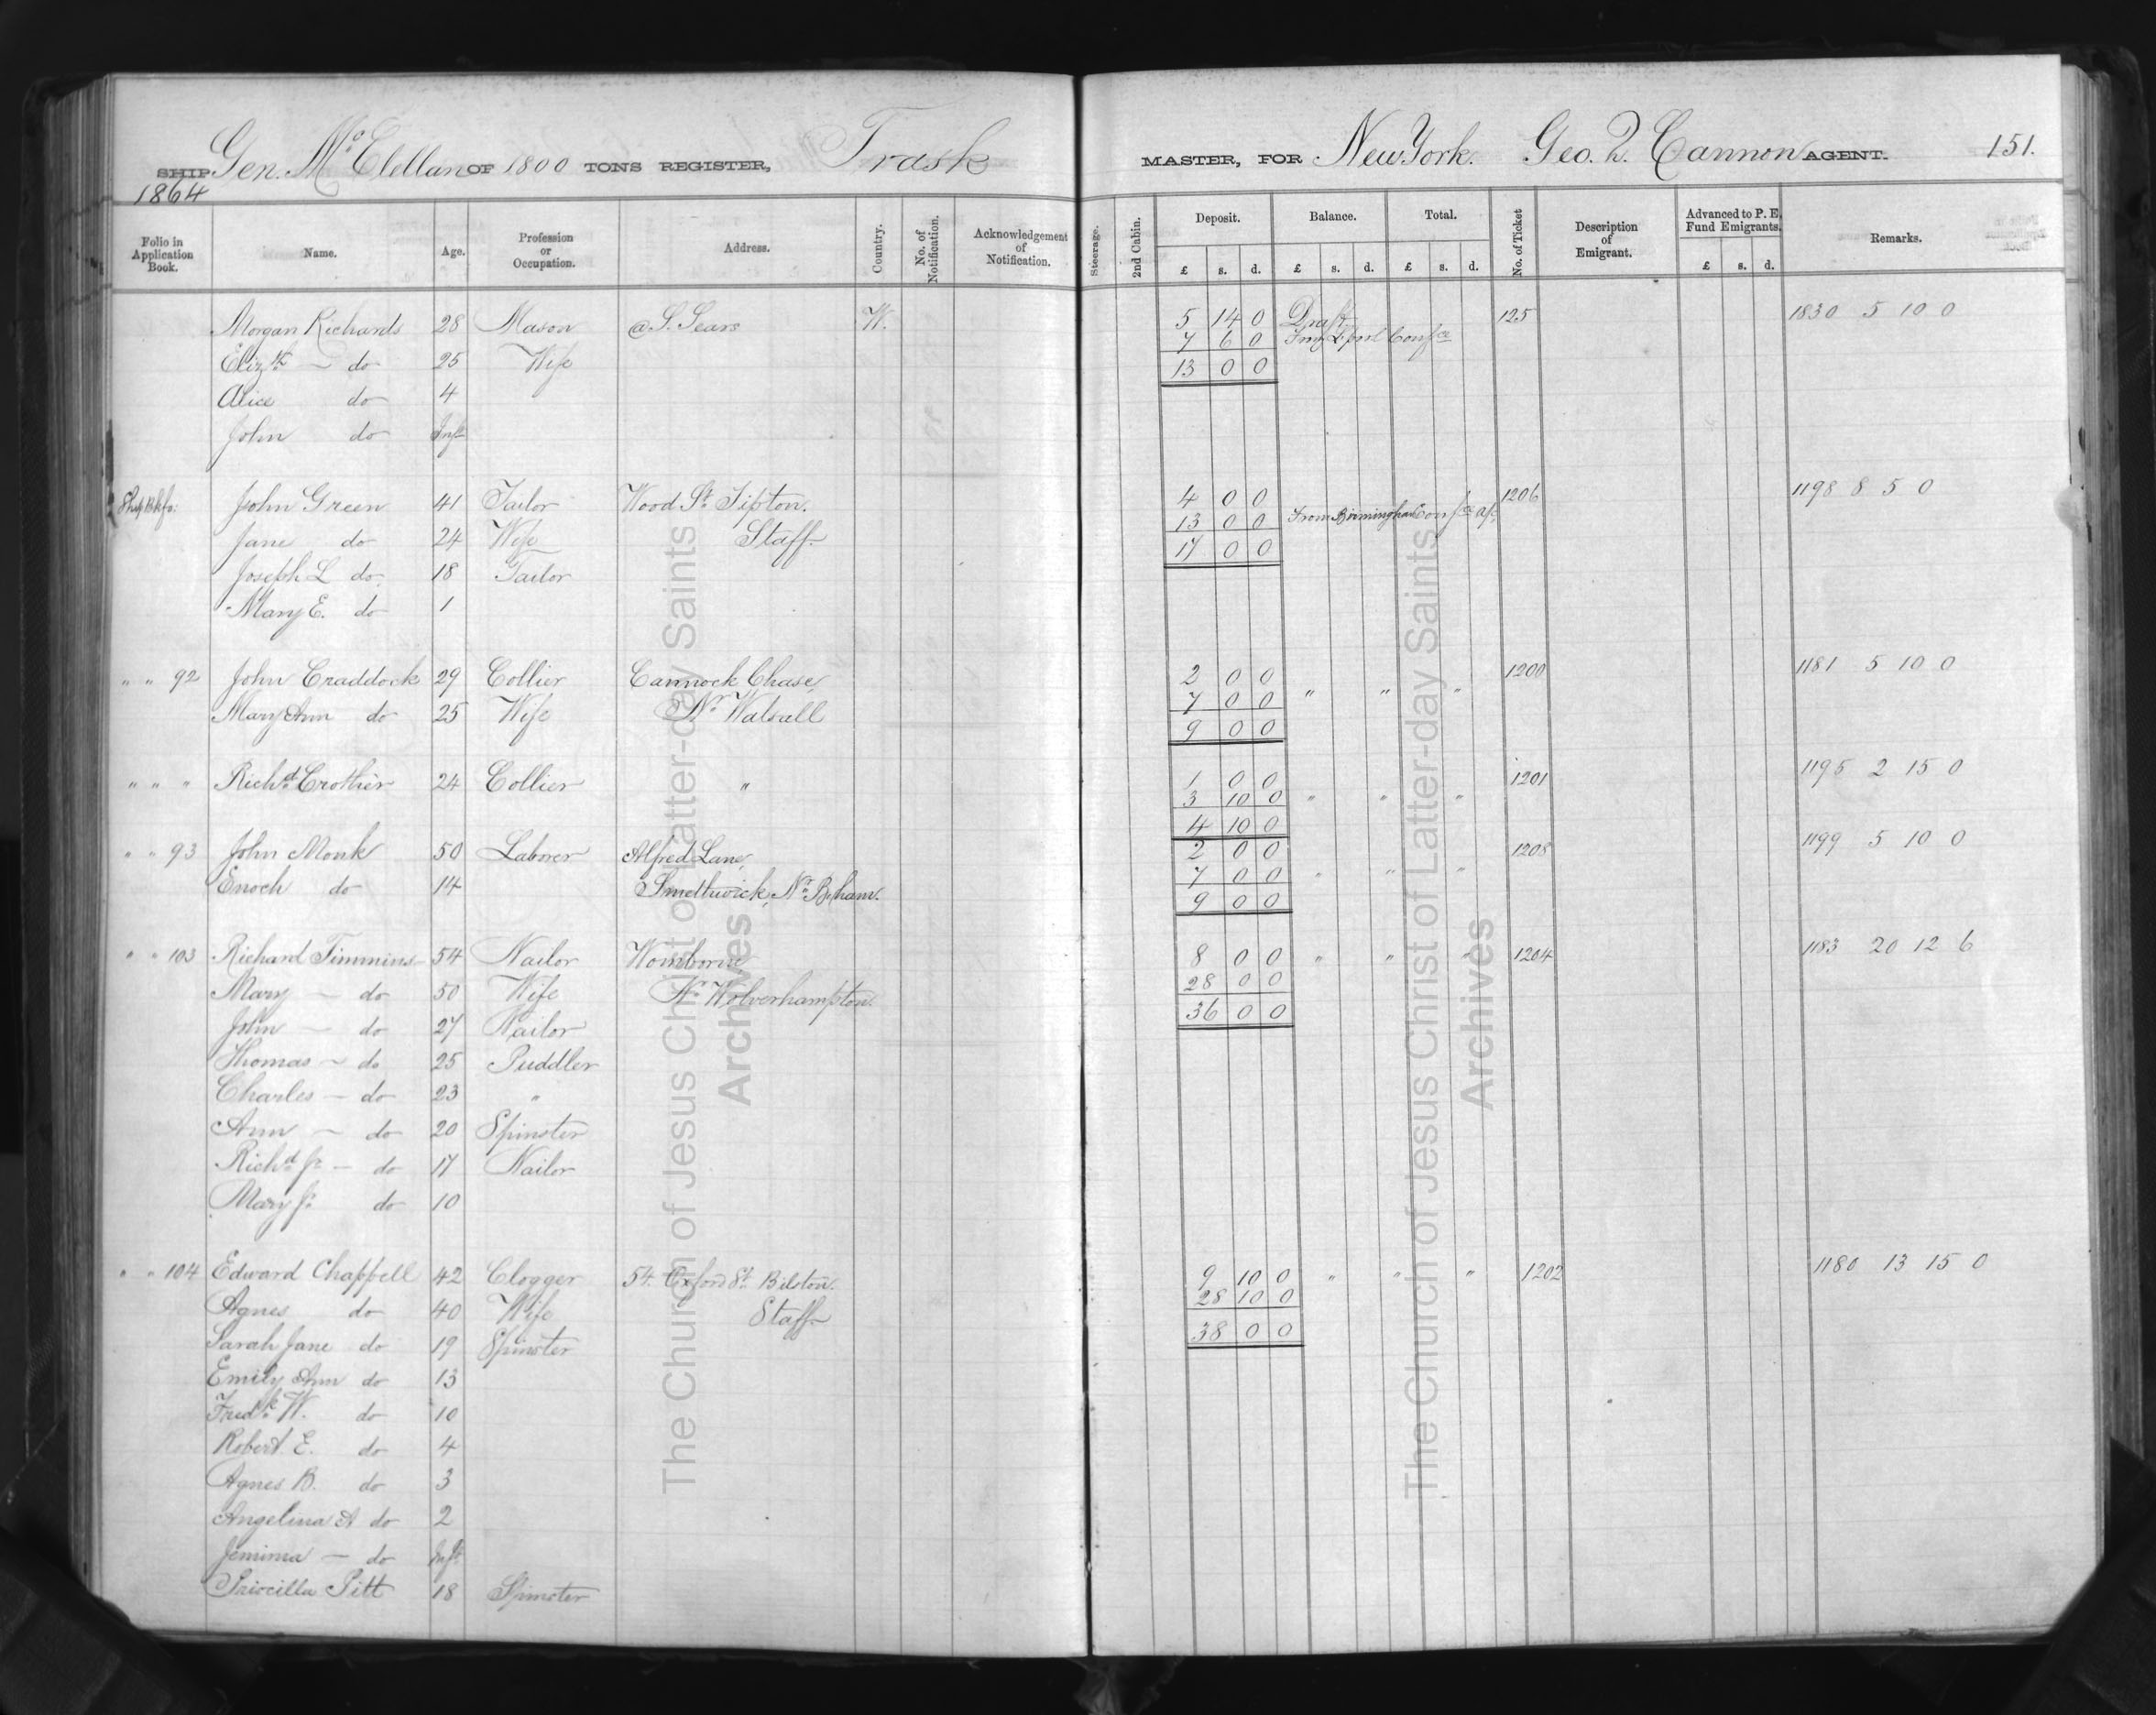 SHIP Gen. McClellan OF 1800 TONS REGISTER, Trask MASTER, FOR New York. Geo. Q. Cannon AGENT. 151.
1864
Folio in Application Book. Name. Age. Profession or Occupation. Address. Country. No. of Notification. Acknowledgement of Notification. Steerage. 2nd Cabin. Deposit. Balance. Total. No. of Ticket Description of Emigrant. Advanced to P. E. Fund Emigrants. Remarks.
£ s. d. £ s. d. £ s. d. £ s. d.
Morgan Richards 28 Mason @ S. Sears W. 5 14 0 Draft 125 1830 5 10 0
7 6 0 From L'pool Confce
Elizth - do 25 Wife 13 0 0
Alice do 4
John do Inft
John Green 41 Tailor Wood St. Tipton. 4 0 0 1206 1198 8 5 0
13 0 0 From Birmingham Confce a/c
Jane do 24 Wife Staff. 17 0 0
Joseph L do. 18 Tailor
Mary E. do 1
" " 92 John Craddock 29 Collier Cannock Chase, 2 0 0 1200 1181 5 10 0
Mary Ann do 25 Wife Nr. Walsall 7 0 0 " " "
9 0 0
" " " Richd. Crother 24 Collier " 1 0 0 1201 1195 2 15 0
3 10 0 " " "
4 10 0
" " 93 John Monk 50 Laborer Alfred Lane, 2 0 0 1208 1199 5 10 0
Enoch do 14 Smethwick, Nr. B.ham. 7 0 0 " " "
9 0 0
" " 103 Richard Timmins 54 Nailor Womborne 8 0 0 " " " 1204 1183 20 12 6
Mary - do 50 Wife Nr. Wolverhampton. 28 0 0
John - do 27 Nailor 36 0 0
Thomas - do 25 Puddler
Charles - do 23 "
Ann - do 20 Spinster
Richd. Jr - do 17 Nailor
Mary Jr. do 10
" " 104 Edward Chappell 42 Clogger 54. Oxford St. Bilston. 9 10 0 " " " 1202 1180 13 15 0
28 10 0
Agnes do 40 Wife Staff. 38 0 0
Sarah Jane do 19 Spinster
Emily Ann do 13
Fredk. W. do 10
Robert E. do 4
Agnes B. do 3
Angelina A do 2
Jemima - do Inft
Priscilla Pitt 18 Spinster
The Church of Jesus Christ of Latter-day Saints
Archives
The Church of Jesus Christ of Latter-day Saints
Archives